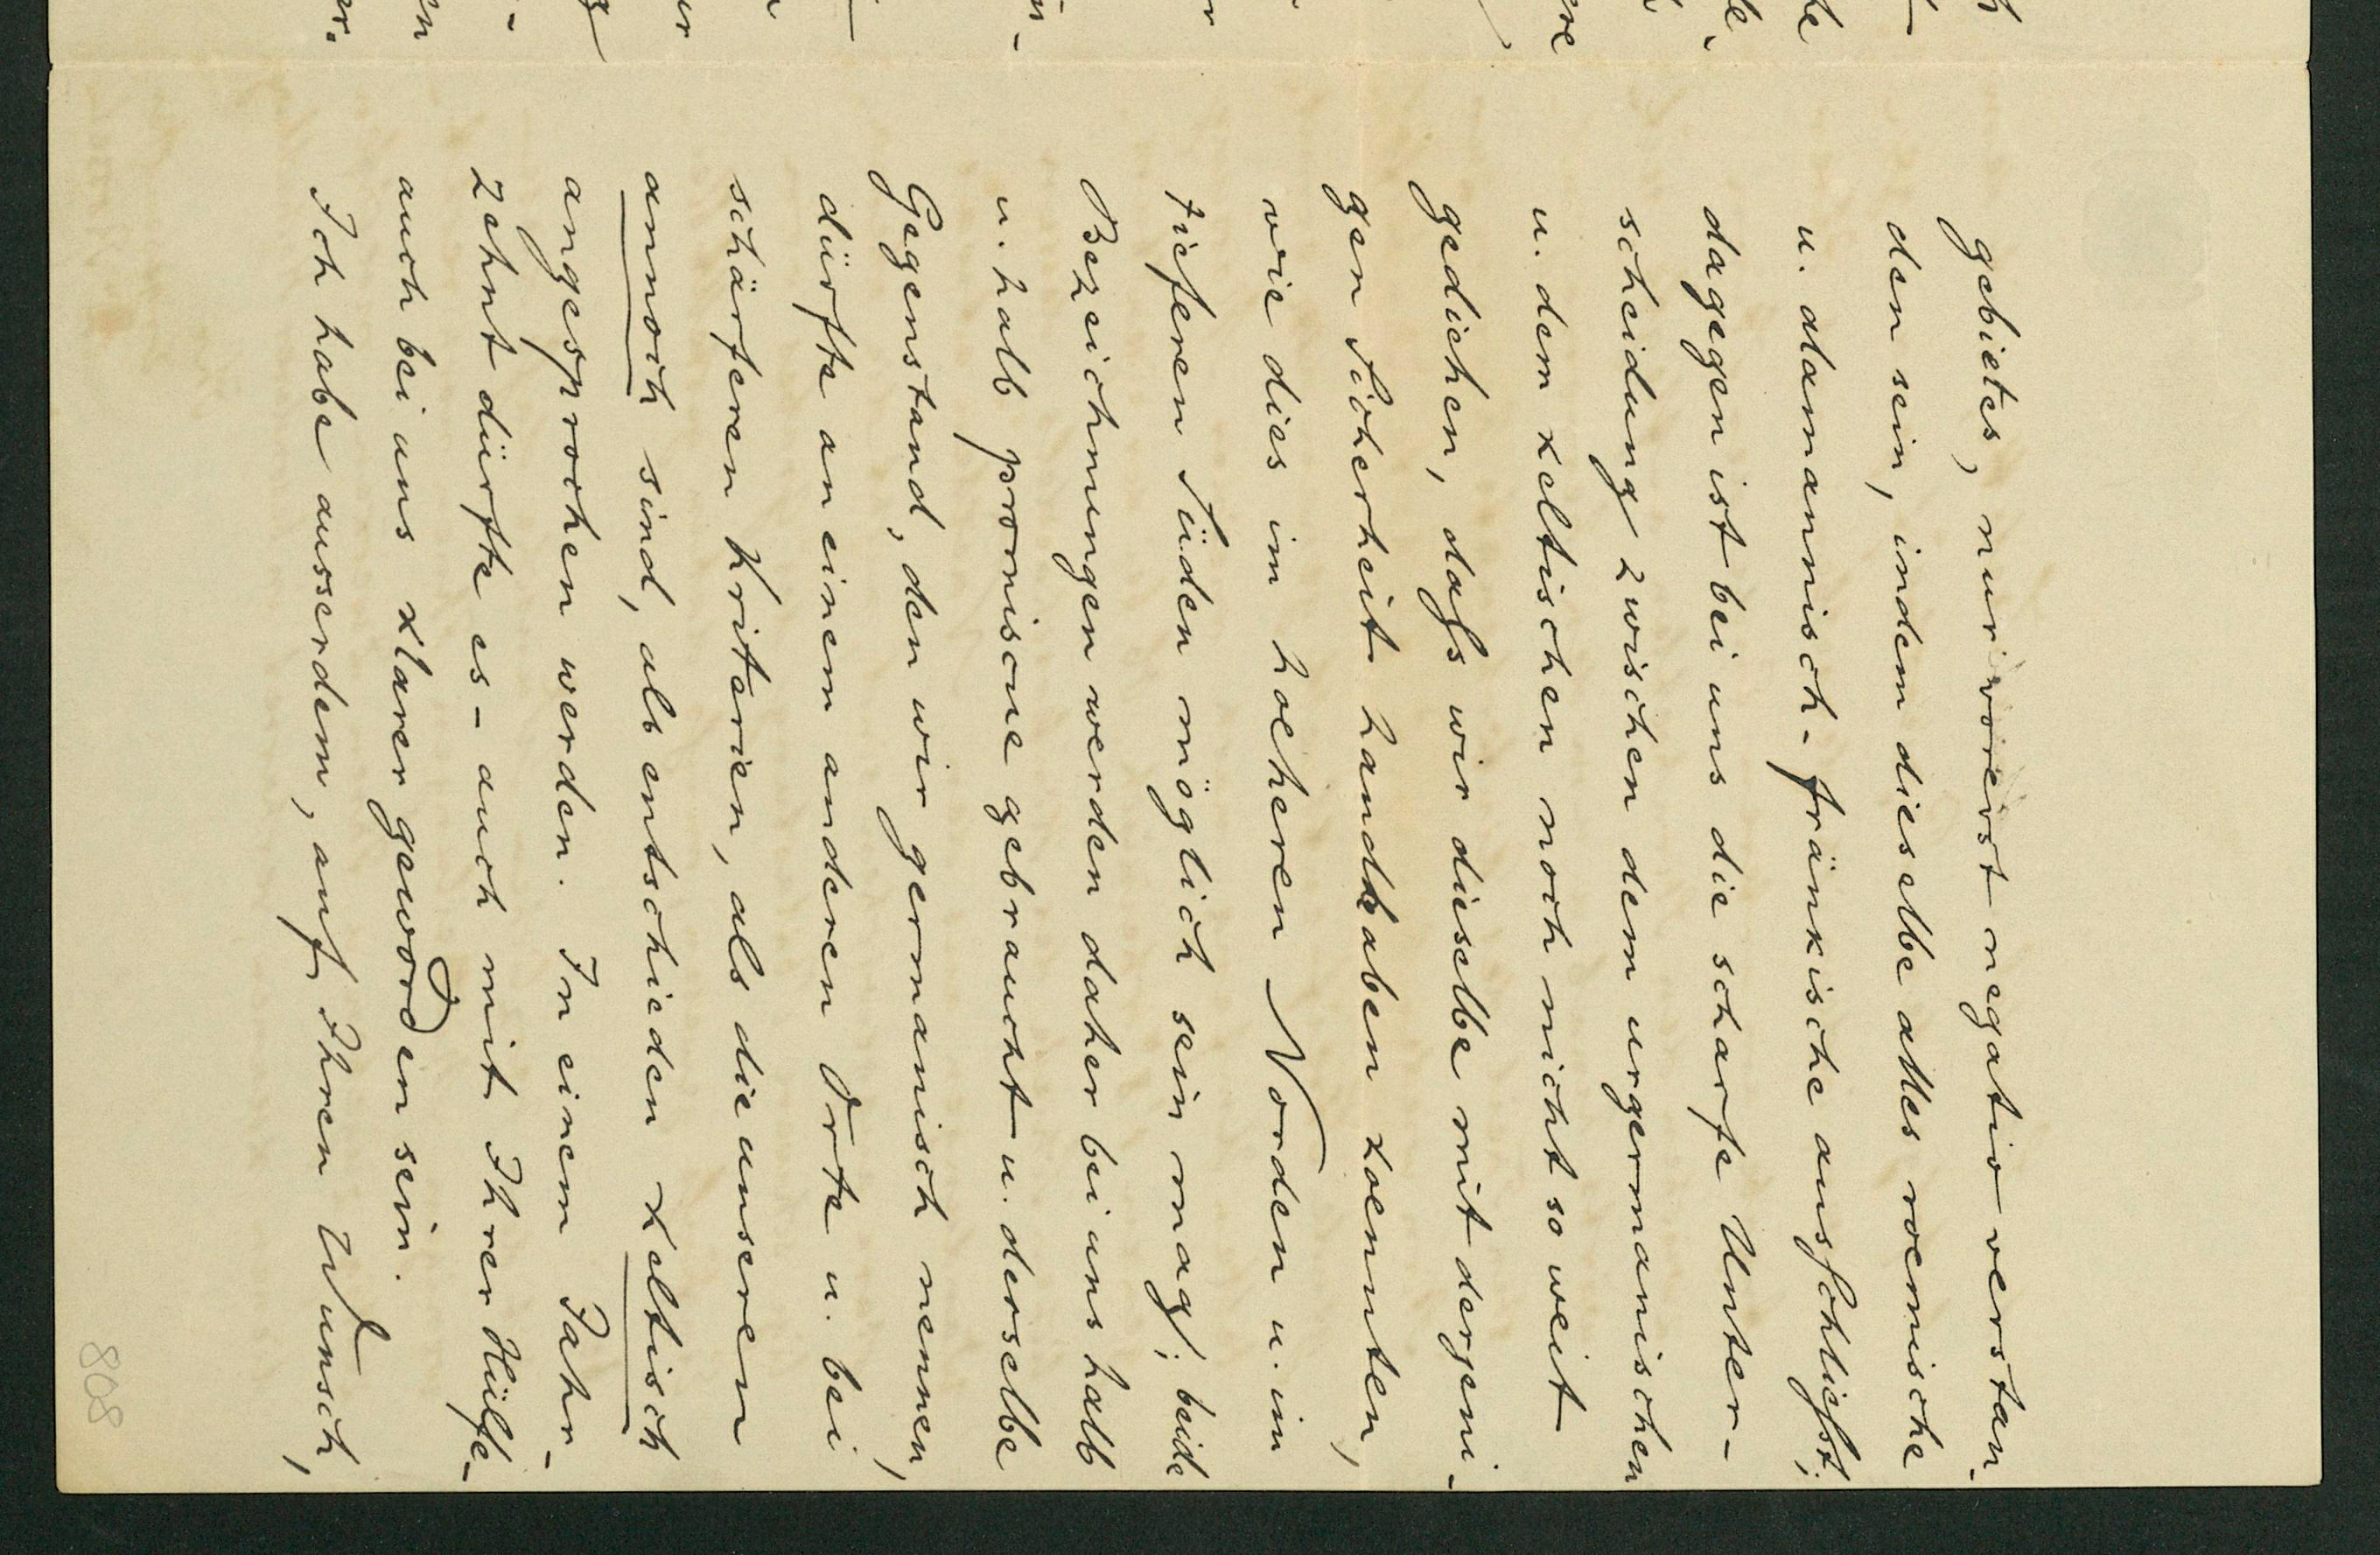 gebietes, nur vorerst negativ verstan-
den sein, indem dieselbe alles roemische
u. alamannisch-fränkische ausschließt;
dagegen ist bei uns die scharfe Unter-
scheidung zwischen dem urgermanischen
u. dem keltischen noch nicht so weit
gediehen, daß wir dieselbe mit derjeni-
gen Sicherheit handhaben koennten,
wie dies im hoeheren Norden u. im
tieferen Süden möglich sein mag; beide
Bezeichnungen werden daher bei uns halb
u. halb promiscue gebraucht u. derselbe
Gegenstand, den wir germanisch nennen,
dürfte an einem anderen Orte u. bei
schärferen Kriterien, als die unseren
annoch sind, als entschieden keltisch
angesprochen werden. In einem Jahr-
zehnt dürfte es - auch mit Ihrer Hülfe -
auch bei uns klarer geworden sein.
Ich habe ausserdem, auf Ihren Wunsch,
808